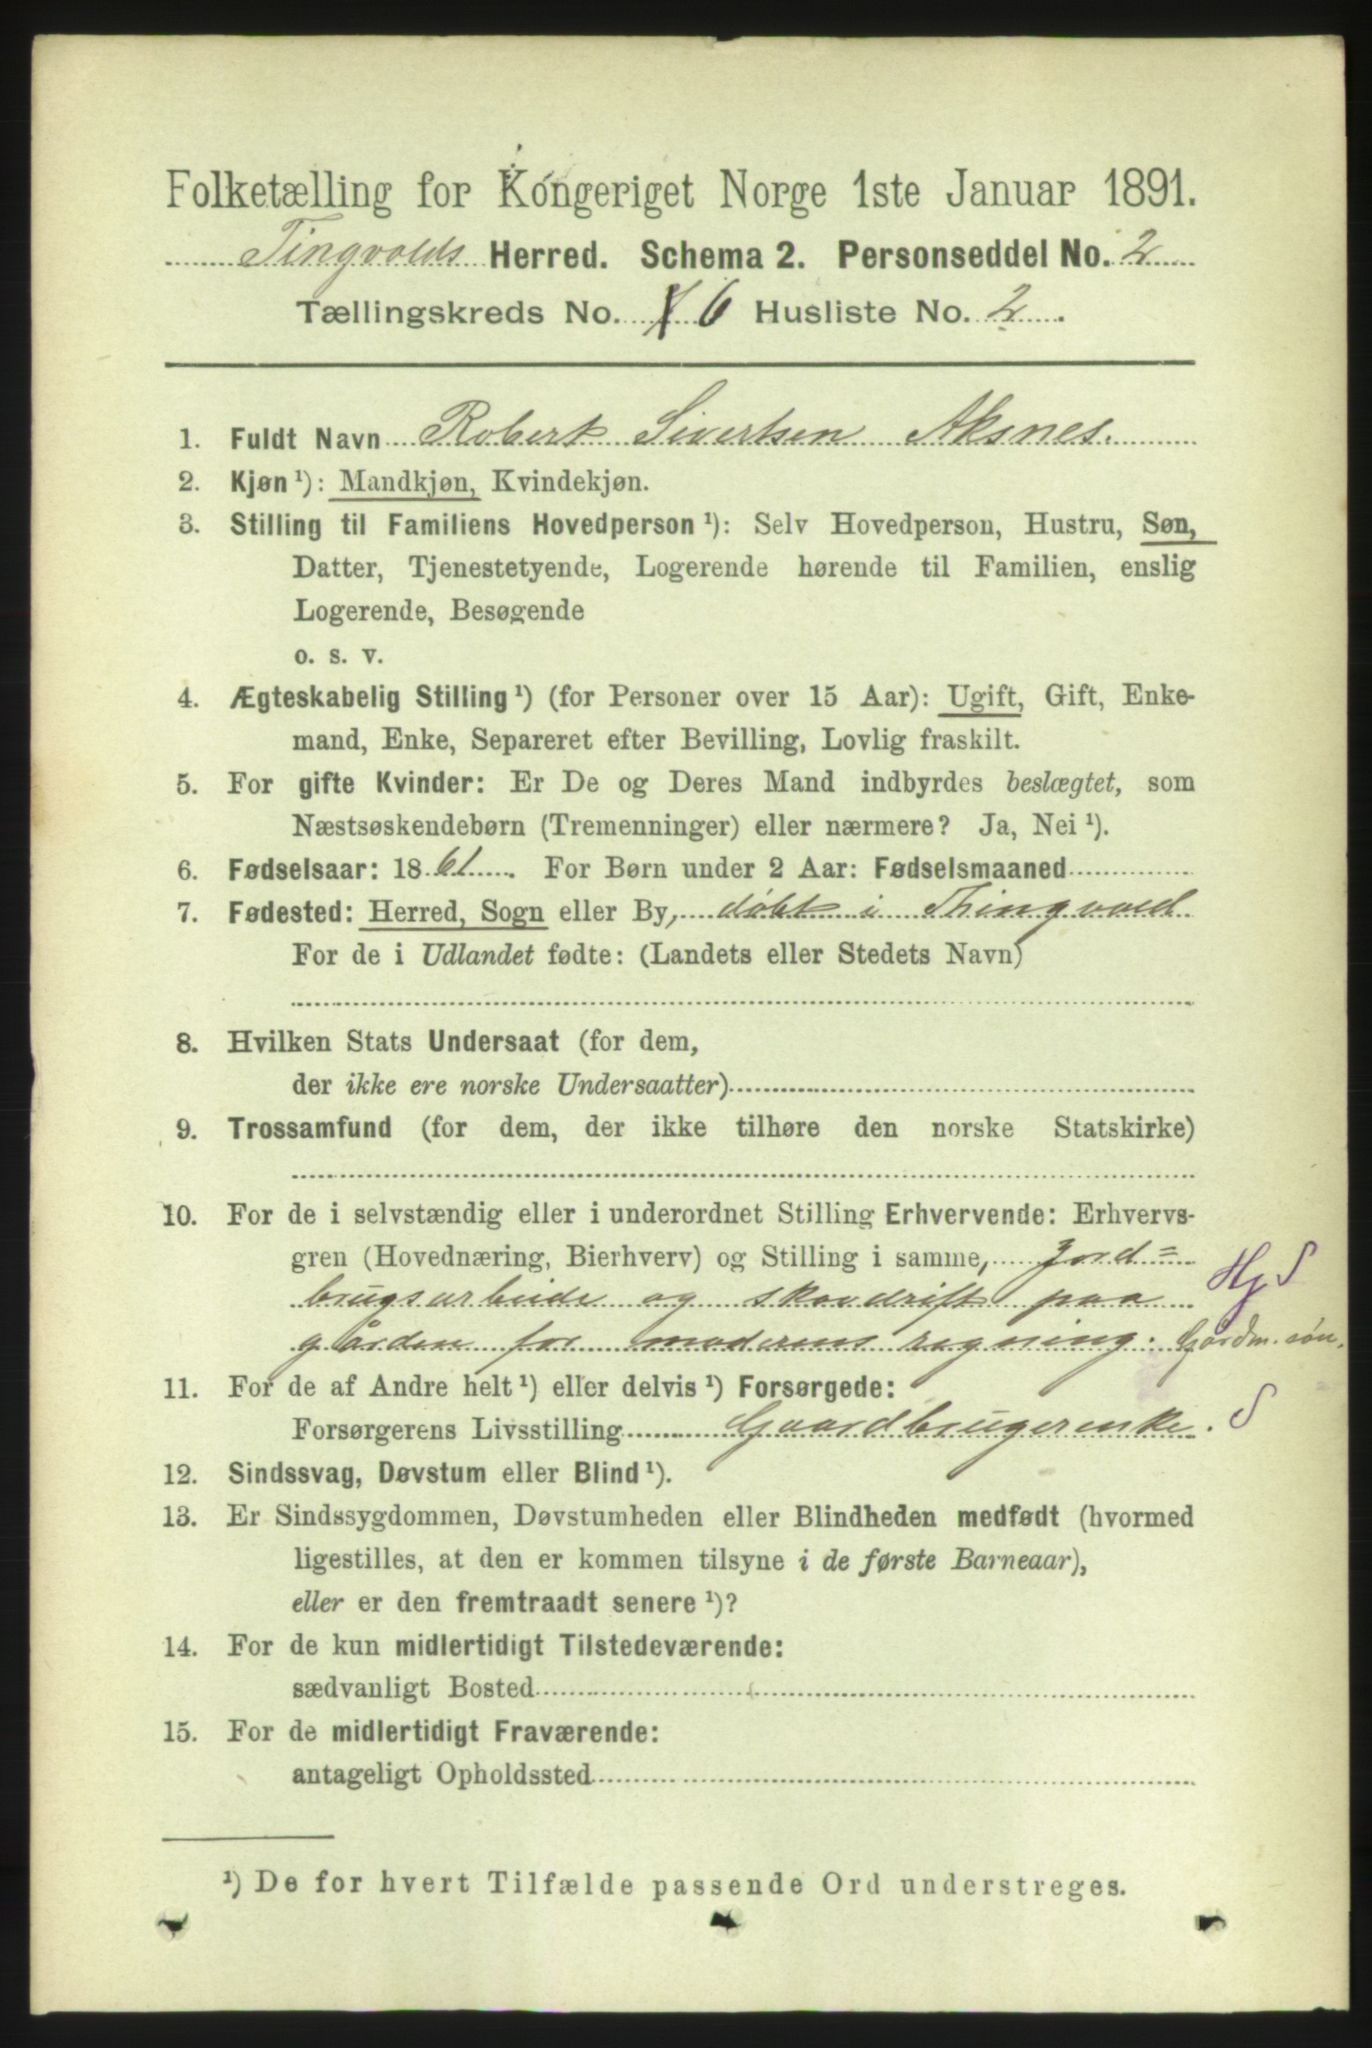 Folketælling for Kongeriget Norge 1ste Januar 1891.
Tingvolds Herred. Schema 2. Personseddel No. 2
Tællingskreds No. 6 Husliste No. 2.
1. Fuldt Navn Robert Sivertsen Aksnes.
2. Kjøn ¹): Mandkjøn, Kvindekjøn.
3. Stilling til Familiens Hovedperson ¹): Selv Hovedperson, Hustru, Søn,
Datter, Tjenestetyende, Logerende hørende til Familien, enslig
Logerende, Besøgende
o. s. v.
4. Ægteskabelig Stilling ¹) (for Personer over 15 Aar): Ugift, Gift, Enke-
mand, Enke, Separeret efter Bevilling, Lovlig fraskilt.
5. For gifte Kvinder: Er De og Deres Mand indbyrdes beslægtet, som
Næstsøskendebørn (Tremenninger) eller nærmere? Ja, Nei ¹).
6. Fødselsaar: 1861. For Børn under 2 Aar: Fødselsmaaned
7. Fødested: Herred, Sogn eller By, døbt i Thingvold
For de i Udlandet fødte: (Landets eller Stedets Navn)
8. Hvilken Stats Undersaat (for dem,
der ikke ere norske Undersaatter)
9. Trossamfund (for dem, der ikke tilhøre den norske Statskirke)
10. For de i selvstændig eller i underordnet Stilling Erhvervende: Erhvervs-
gren (Hovednæring, Bierhverv) og Stilling i samme, Jord=
brugsarbeide og skovdrift paa Hj S
gården for moderens regning. Gårdm. søn.
11. For de af Andre helt ¹) eller delvis ¹) Forsørgede:
Forsørgerens Livsstilling Gaardbrugerenke. S
12. Sindssvag, Døvstum eller Blind ¹).
13. Er Sindssygdommen, Døvstumheden eller Blindheden medfødt (hvormed
ligestilles, at den er kommen tilsyne i de første Barneaar),
eller er den fremtraadt senere ¹)?
14. For de kun midlertidigt Tilstedeværende:
sædvanligt Bosted
15. For de midlertidigt Fraværende:
antageligt Opholdssted
¹) De for hvert Tilfælde passende Ord understreges.